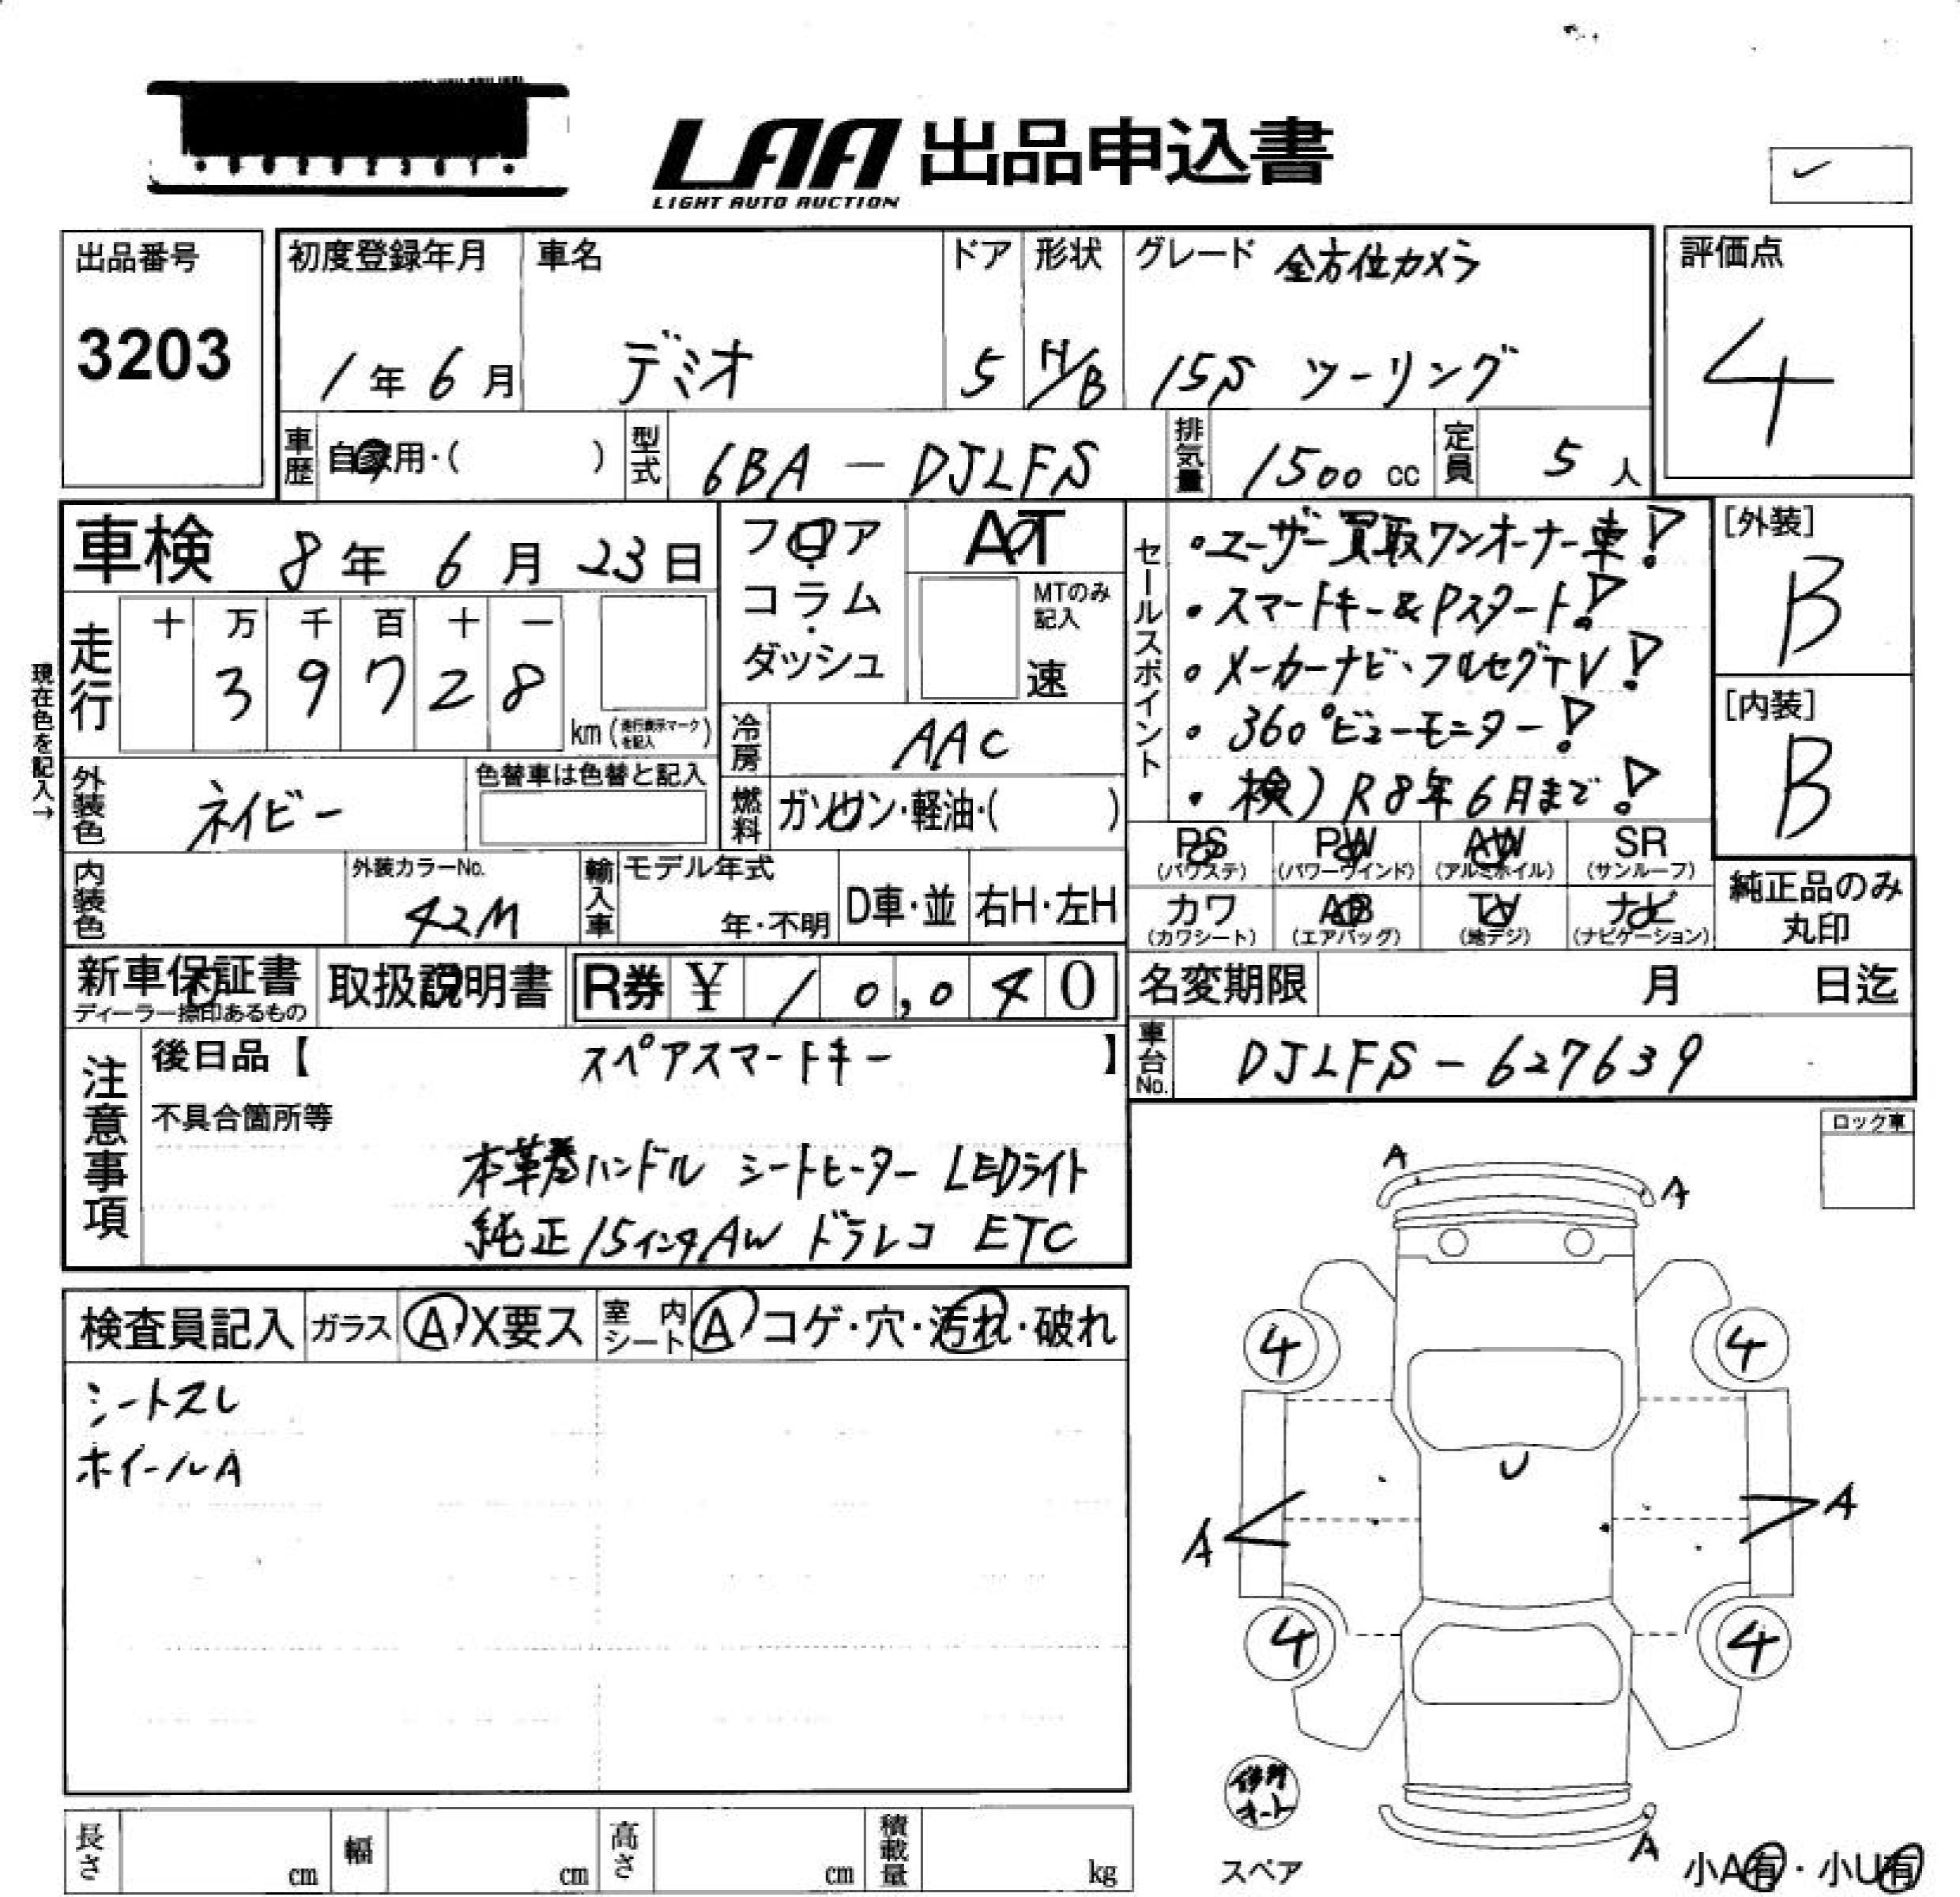 LAA 出品申込書
LIGHT AUTO AUCTION
出品番号
3203
初度登録年月
1年6月
車名
デミオ
ドア
5
形状
H/B
グレード 全方位カメラ
15S ツーリング
評価点
4
車歴
自家用・( )
型式
6BA - DJLFS
排気量
1500cc
定員
5人
車検 8年6月23日
現在色を記入→
走行
十 万 千 百 十 一
3 9 7 2 8
km (走行表示マークを記入)
フロア
・
コラム
・
ダッシュ
AT
MTのみ記入
速
冷房
AAC
燃料
ガソリン・軽油・( )
外装色
ネイビー
色替車は色替と記入
内装色
外装カラーNo.
42M
輸入車
モデル年式
年・不明
D車・並
右H・左H
セールスポイント
・ユーザー買取ワンオーナー車!
・スマートキー&Pスタート!
・メーカーナビ、フルセグTV!
・360°ビューモニター!
・検)R8年6月まで!
[外装]
B
[内装]
B
PS
(パワステ)
PW
(パワーウインド)
AW
(アルミホイル)
SR
(サンルーフ)
カワ
(カワシート)
AB
(エアバッグ)
TV
(地デジ)
ナビ
(ナビゲーション)
純正品のみ
丸印
新車保証書
ディーラー捺印あるもの
取扱説明書
R券 ¥ 10,040
名変期限 月 日迄
車台No.
DJLFS-627639
注意事項
後日品【 スペアスマートキー 】
不具合箇所等
本革巻ハンドル シートヒーター LEDライト
純正15インチAW ドラレコ ETC
ロック車
検査員記入
ガラス
A・X要ス
室内シート
A・コゲ・穴・汚れ・破れ
シートスレ
ホイールA
A
A
4
4
U
A
A
4
4
修理
キット
スペア
A
小A有・小U有
長さ cm
幅 cm
高さ cm
積載量 kg